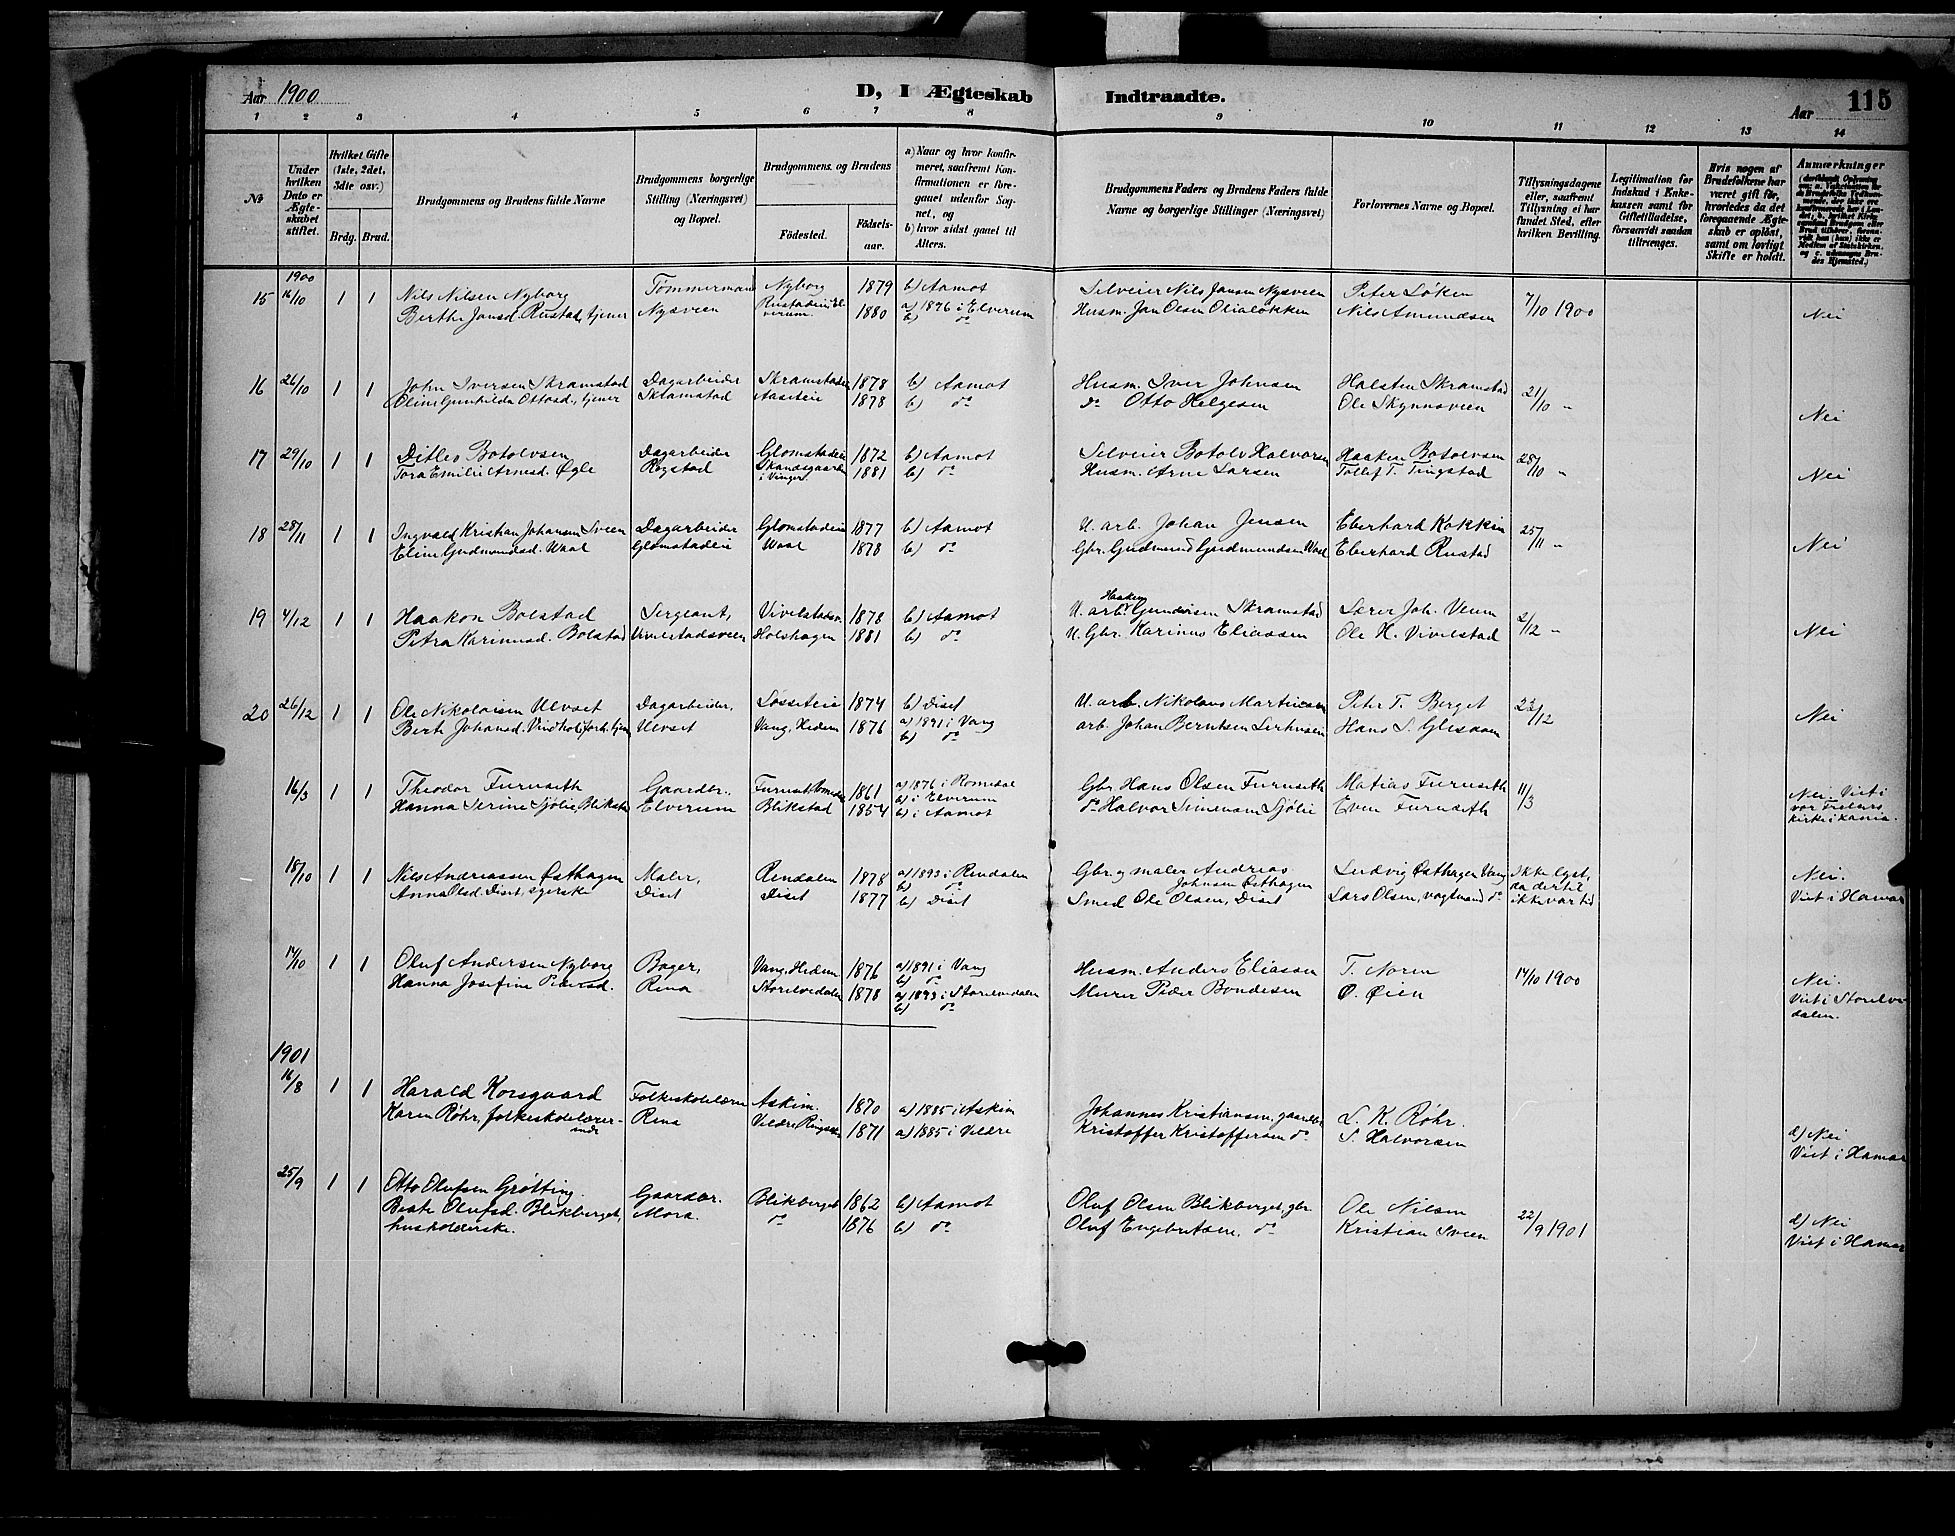 Aar 1900
D, I Ægteskab Indtraadte.
Aar 115
1 2 3 4 5 6 7 8 9 10 11 12 13 14
№
Under hvilken Dato er Ægteskabet stiftet.
Hvilket Gifte (1ste, 2det, 3die osv.)
Brdg. Brud.
Brudgommens og Brudens fulde Navne
Brudgommens borgerlige Stilling (Næringsvei) og Bopæl.
Brudgommens og Brudens
Fødested. Fødselsaar.
a) Naar og hvor konfirmeret, saafremt Konfirmationen er foregaaet udenfor Sognet, og
b) hvor sidst gaaet til Alters.
Brudgommens Faders og Brudens Faders fulde Navne og borgerlige Stillinger (Næringsvei)
Forlovernes Navne og Bopæl.
Tillysningsdagene eller, saafremt Tillysning ei har fundet Sted, efter hvilken Bevilling.
Legitimation for Indskud i Enkekassen samt for Giftetilladelse, forsaavidt saadan tiltrænges.
Hvis nogen af Brudefolkene har været gift før, hvorledes da det foregaaende Ægteskab er opløst, samt om lovligt Skifte er holdt.
Anmærkninger
1900
15 16/10 1 1 Nils Nilsen Nyborg Tømmermand Nyborg 1879 b) Aamot Selveier Nils Jansen Nysveen Peter Løken 7/10 1900 Nei
Berthe Jansd. Rustad, tjener Nysveen Rustadeie Elverum. 1880 a) 1896 i Elverum b) do Husm. Jan Olsen Olialøkken Nils Amundsen
16 26/10 1 1 John Iversen Skramstad Dagarbeider Skramstadeie 1878 b) Aamot Husm. Iver Johnsen Halsten Skramstad 21/10 " Nei
Oline Gunhilda Ottosd., tjener Skramstad Aaseteie 1878 b) do do Otto Helgesen Ole Skynnsveen
17 29/10 1 1 Ditlev Botolvsen Dagarbeider Glomstadeie 1872 b) Aamot Selveier Botolv Halvorsen Haaken Botolvsen 28/10 " Nei
Tora Emilie Arnesd. Øgle Rogstad i Vinger. 1881 b) do Husm. Arne Larsen Tollef T. Tingstad
18 28/11 1 1 Ingvald Kristian Johansen Sveen Dagarbeider Glomstadeie 1877 b) Aamot U. arb. Johan Jensen Eberhard Kokkin 25/11 " Nei
Eline Gudmundsd. Waal Glomstadeie Waal 1878 b) do Gbr. Gudmund Gudmundsen Waal Eberhard Rustad
19 4/12 1 1 Haakon Bolstad Sergeant, Vivelstadsv. 1878 b) Aamot U. arb. Haaken Gundersen Skramstad Joh. Veum 2/12 " Nei
Petra Karinusd. Bolstad Vivelstadsveen Holshagen 1881 b) do U. Gbr. Karinus Eliassen Ole H. Vivelstad
20 26/12 1 1 Ole Nikolaisen Ulvset Dagarbeider, Løsseteie 1874 b) Diset U. arb. Nikolaus Martinsen Peter T. Berget 23/12 Nei
Berte Johansd. Ulvset Vang, Hedem 1876 a) 1891 i Vang b) do arb. Johan Berntsen Hans S. Glesaaen
16/3 1 1 Theodor Furuseth Gaardbr., Furuset Romedal 1861 a) 1876 i Romedal b) i Elverum Gbr. Hans Olsen Furuseth Matias Furuseth 11/3 Nei. Viet i
Hanna Serine Sjølie, Blikstad Elverum Blikstad 1854 b) i Aamot do Halvor Simensen Sjølie Even Furuseth vor Frelsers kirke i Xania.
18/10 1 1 Nils Andreassen Østhagen Maler, Rendalen 1878 a) 1893 i Rendalen b) do Gbr. og maler Andreas Johnsen Østhagen Ludvig Østhagen Vang Ikke lyst, da dertil ikke var tid Nei.
Anna Olsd. Diset, syerske Diset Diset 1877 b) Diset Smed Ole Olsen, Diset Lars Olsen, vogtmand do Viet i Hamar
14/10 1 1 Oluf Andersen Nyborg Bager, Vang, Hedem 1876 a) 1891 i Vang b) do Husm. Anders Eliassen T. Noren 14/10 1900 Nei.
Hanna Josefine Pedersd. Rena Storelvedalen 1878 a) 1893 i Storelvedalen b) do Murer Peder Bondesen O. Øien Viet i Storelvedalen.
1901
16/8 1 1 Harald Korsgaard Folkeskolelærer Askim. 1870 a) 1885 i Askim Johannes Kristiansen, gaardbr L. K. Røhr.
Karen Røhr, folkeskolelærerinde Rena Veldre Ringsaker 1871 a) 1885 i Veldre Kristoffer Kristoffersen do S. Halvorsen d) Nei Viet i Hamar
25/9 1 1 Otto Olufsen Grøtting. Gaardbr. Blikberget 1862 b) Aamot Oluf Olsen Blikberget, gbr. Ole Nilsen 22/9 1901 d) Nei
Beate Olufsd. Blikberget, husholderske. Mora. do 1876 b) do Oluf Engebretsen, do Kristian Sveen Viet i Hamar